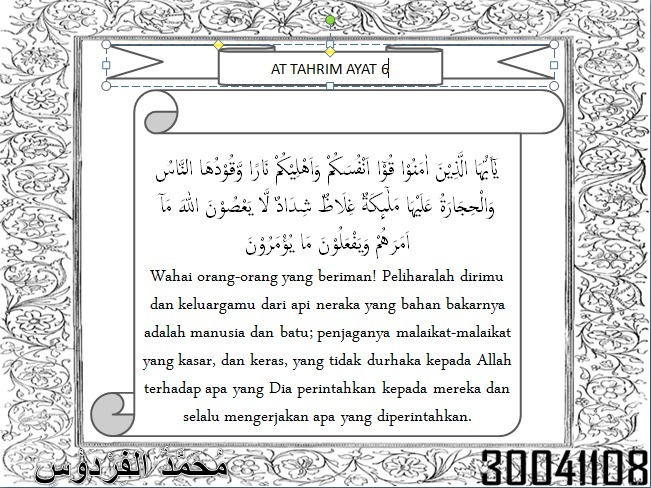 AT TAHRIM AYAT 6
يٰٓاَيُّهَا الَّذِيْنَ اٰمَنُوْا قُوْٓا اَنْفُسَكُمْ وَاَهْلِيْكُمْ نَارًا وَّقُوْدُهَا النَّاسُ
وَالْحِجَارَةُ عَلَيْهَا مَلٰۤىِٕكَةٌ غِلَاظٌ شِدَادٌ لَّا يَعْصُوْنَ اللّٰهَ مَآ
اَمَرَهُمْ وَيَفْعَلُوْنَ مَا يُؤْمَرُوْنَ
Wahai orang-orang yang beriman! Peliharalah dirimu
dan keluargamu dari api neraka yang bahan bakarnya
adalah manusia dan batu; penjaganya malaikat-malaikat
yang kasar, dan keras, yang tidak durhaka kepada Allah
terhadap apa yang Dia perintahkan kepada mereka dan
selalu mengerjakan apa yang diperintahkan.
مُحَمَّدُ الفَرْدَوْس
30041108